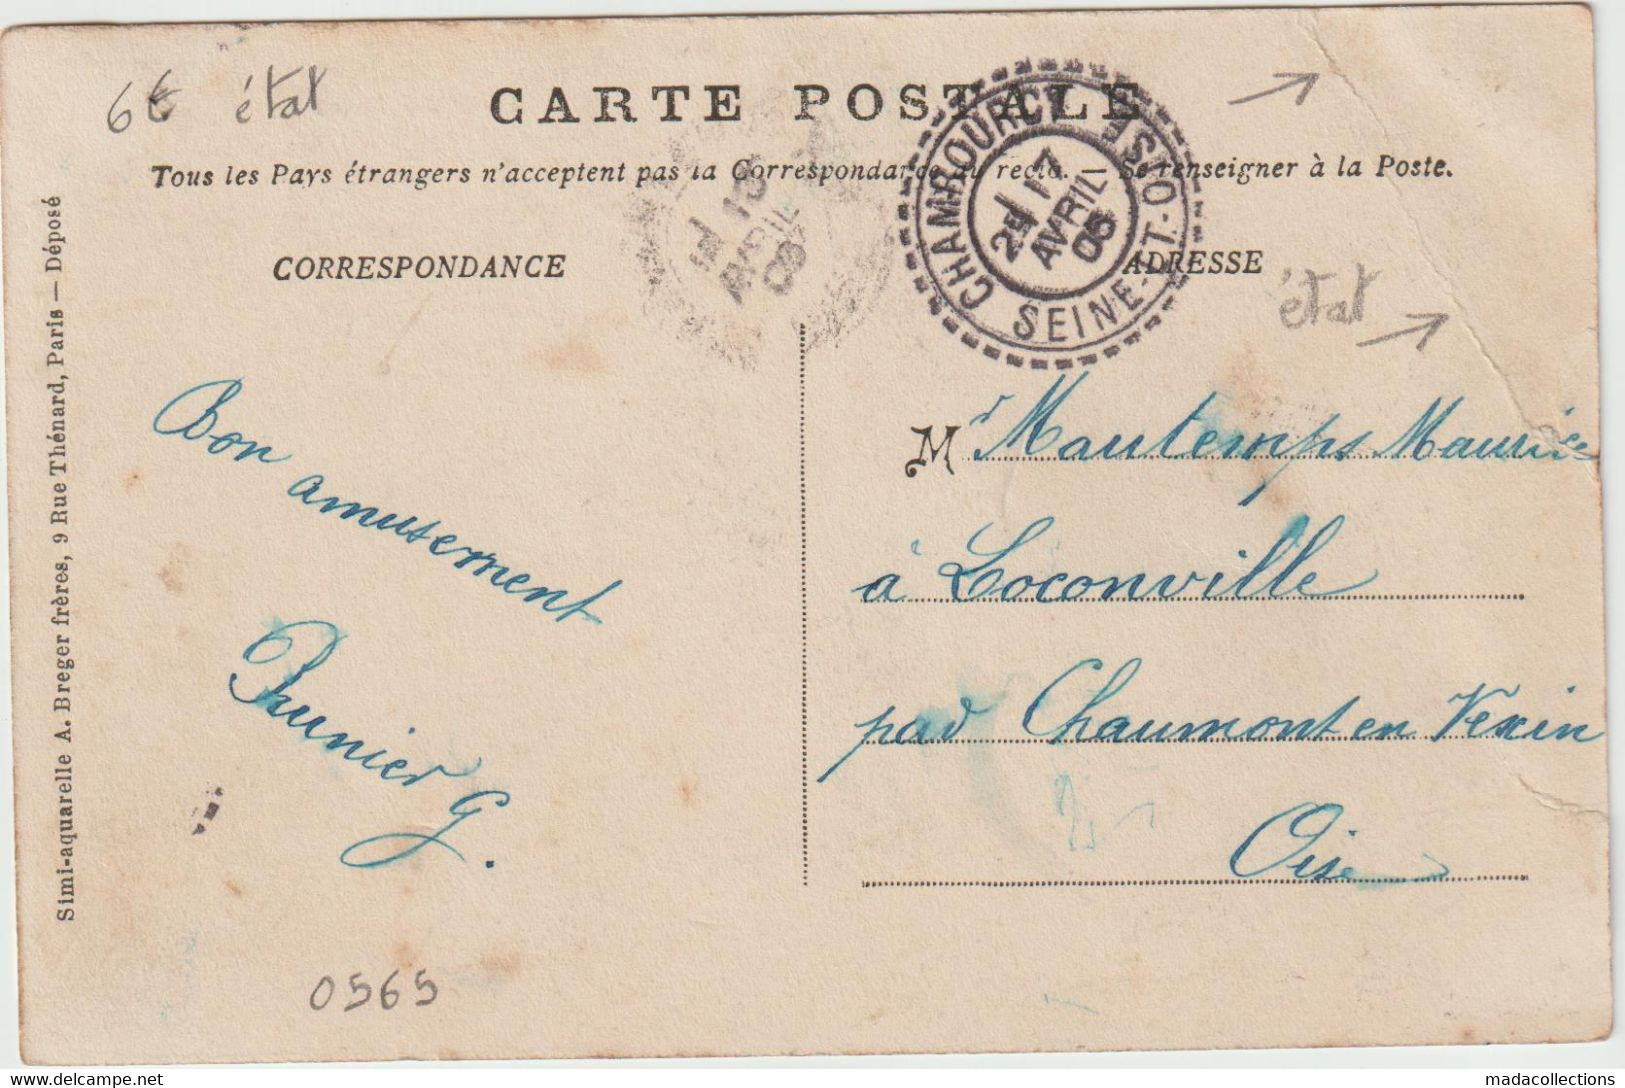 6€ état
CARTE POSTALE
Tous les Pays étrangers n'acceptent pas la Correspondance au recto. — Se renseigner à la Poste.
CORRESPONDANCE
AVRIL
CHAMBOURCY SEINE-ET-OISE
17
AVRIL
05
ADRESSE
état
Bon amusement
Prunier G.
Mr Mautemps Maurice
à Loconville
par Chaumont en Vexin
Oise
0565
Simi-aquarelle A. Breger frères, 9 Rue Thénard, Paris — Déposé
madacollections